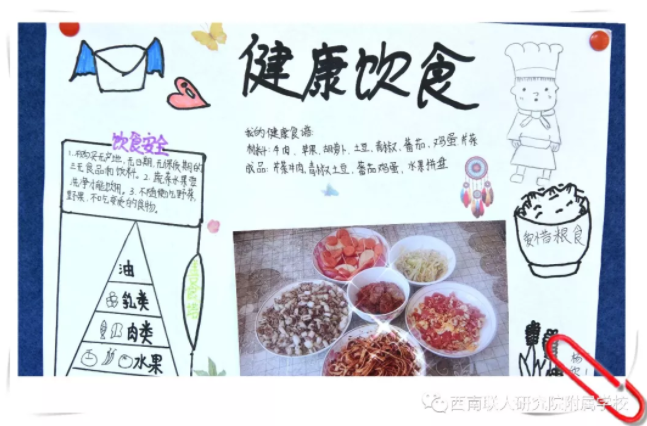 健康饮食
饮食安全
我的健康食谱:
制料: 牛肉、苹果、胡萝卜、土豆、青椒、番茄、鸡蛋 芹菜
成品: 芹菜牛肉,青椒土豆、番茄鸡蛋、水果拼盘
1.不购买无产地、无日期,无保质期的
三无食品和饮料。2.蔬菜水果要
洗净才能饮用。3.不随便吃野菜
野果,不吃变质的食物。
爱惜粮食
油
乳类
肉类
水果
杨
西南联大研究院附属学校